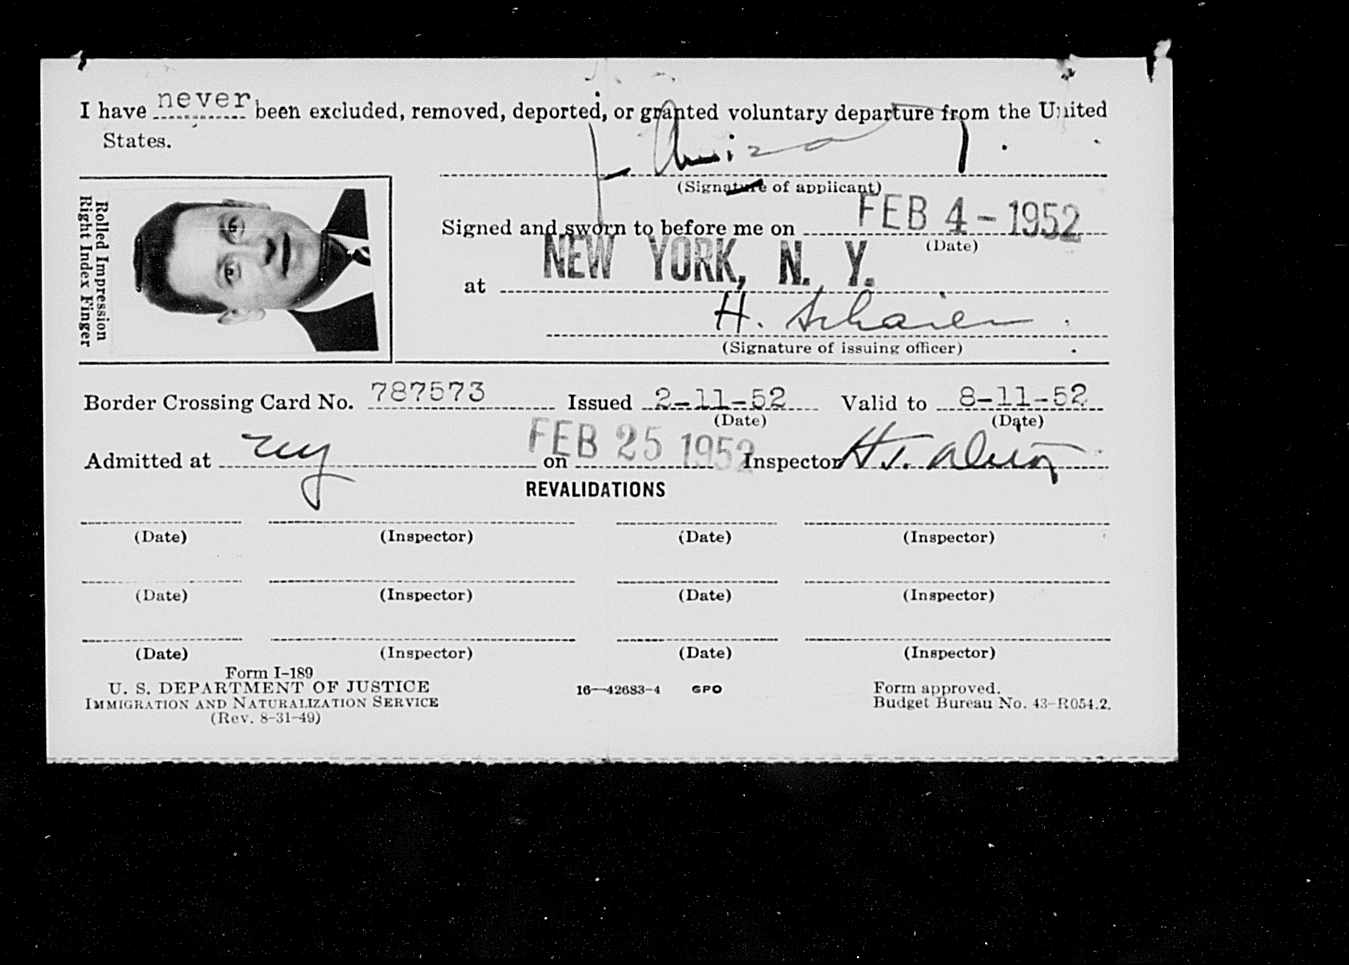 I have never been excluded, removed, deported, or granted voluntary departure from the United
States.
(Signature of applicant)
Rolled Impression
Right Index Finger
Signed and sworn to before me on FEB 4 - 1952
(Date)
at NEW YORK, N. Y.
H.
(Signature of issuing officer)
Border Crossing Card No. 787573 Issued 2-11-52 Valid to 8-11-52
(Date) (Date)
Admitted at ny on FEB 25 1952 Inspector
REVALIDATIONS
(Date) (Inspector) (Date) (Inspector)
(Date) (Inspector) (Date) (Inspector)
(Date) (Inspector) (Date) (Inspector)
Form I-189
U. S. DEPARTMENT OF JUSTICE
IMMIGRATION AND NATURALIZATION SERVICE
(Rev. 8-31-49)
16—42683-4 GPO
Form approved.
Budget Bureau No. 43-R054.2.